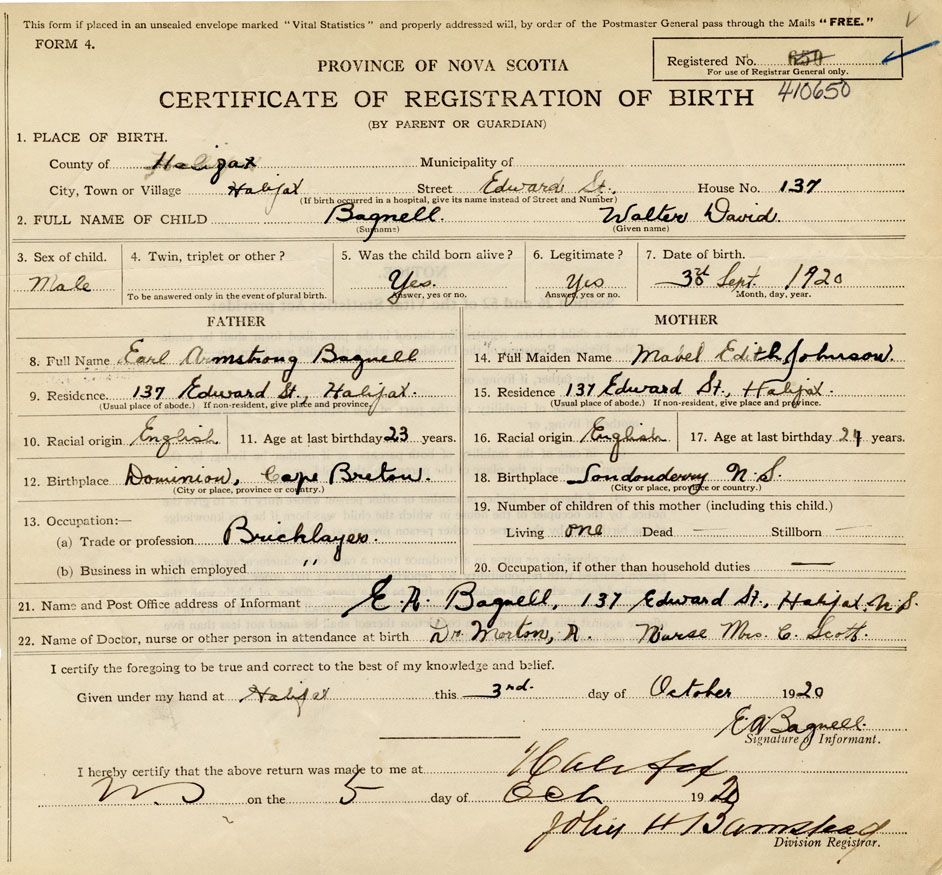 This form if placed in an unsealed envelope marked "Vital Statistics" and properly addressed will, by order of the Postmaster General pass through the Mails "FREE."
FORM 4.
Registered No. 650
For use of Registrar General only.
410650
PROVINCE OF NOVA SCOTIA
CERTIFICATE OF REGISTRATION OF BIRTH
(BY PARENT OR GUARDIAN)
1. PLACE OF BIRTH.
County of Halifax Municipality of
City, Town or Village Halifax Street Edward St. House No. 137
(If birth occurred in a hospital, give its name instead of Street and Number)
2. FULL NAME OF CHILD Bagnell. Walter David.
(Surname) (Given name)
3. Sex of child. 4. Twin, triplet or other? 5. Was the child born alive? 6. Legitimate? 7. Date of birth.
Male Yes. Yes Sept. 1920
To be answered only in the event of plural birth. Answer, yes or no. Answer, yes or no. Month, day, year.
FATHER MOTHER
8. Full Name Earl Armstrong Bagnell 14. Full Maiden Name Mabel Edith Johnson.
9. Residence. 137 Edward St., Halifax. 15. Residence 137 Edward St., Halifax.
(Usual place of abode.) If non-resident, give place and province. (Usual place of abode.) If non-resident, give place and province.
10. Racial origin English 11. Age at last birthday 23 years. 16. Racial origin English 17. Age at last birthday years.
12. Birthplace Dominion, Cape Breton. 18. Birthplace Londonderry N.S.
(City or place, province or country.) (City or place, province or country.)
13. Occupation:— 19. Number of children of this mother (including this child.)
(a) Trade or profession Bricklayer. Living one Dead — Stillborn —
(b) Business in which employed " 20. Occupation, if other than household duties —
21. Name and Post Office address of Informant E. A. Bagnell, 137 Edward St., Halifax, N.S.
22. Name of Doctor, nurse or other person in attendance at birth Dr. Morton, A. Nurse Mrs. C. Scott.
I certify the foregoing to be true and correct to the best of my knowledge and belief.
Given under my hand at Halifax this 3rd. day of October 1920
E A Bagnell.
Signature of Informant.
I hereby certify that the above return was made to me at Halifax
on the 5 day of Oct 1920
John H Barnstead
Division Registrar.